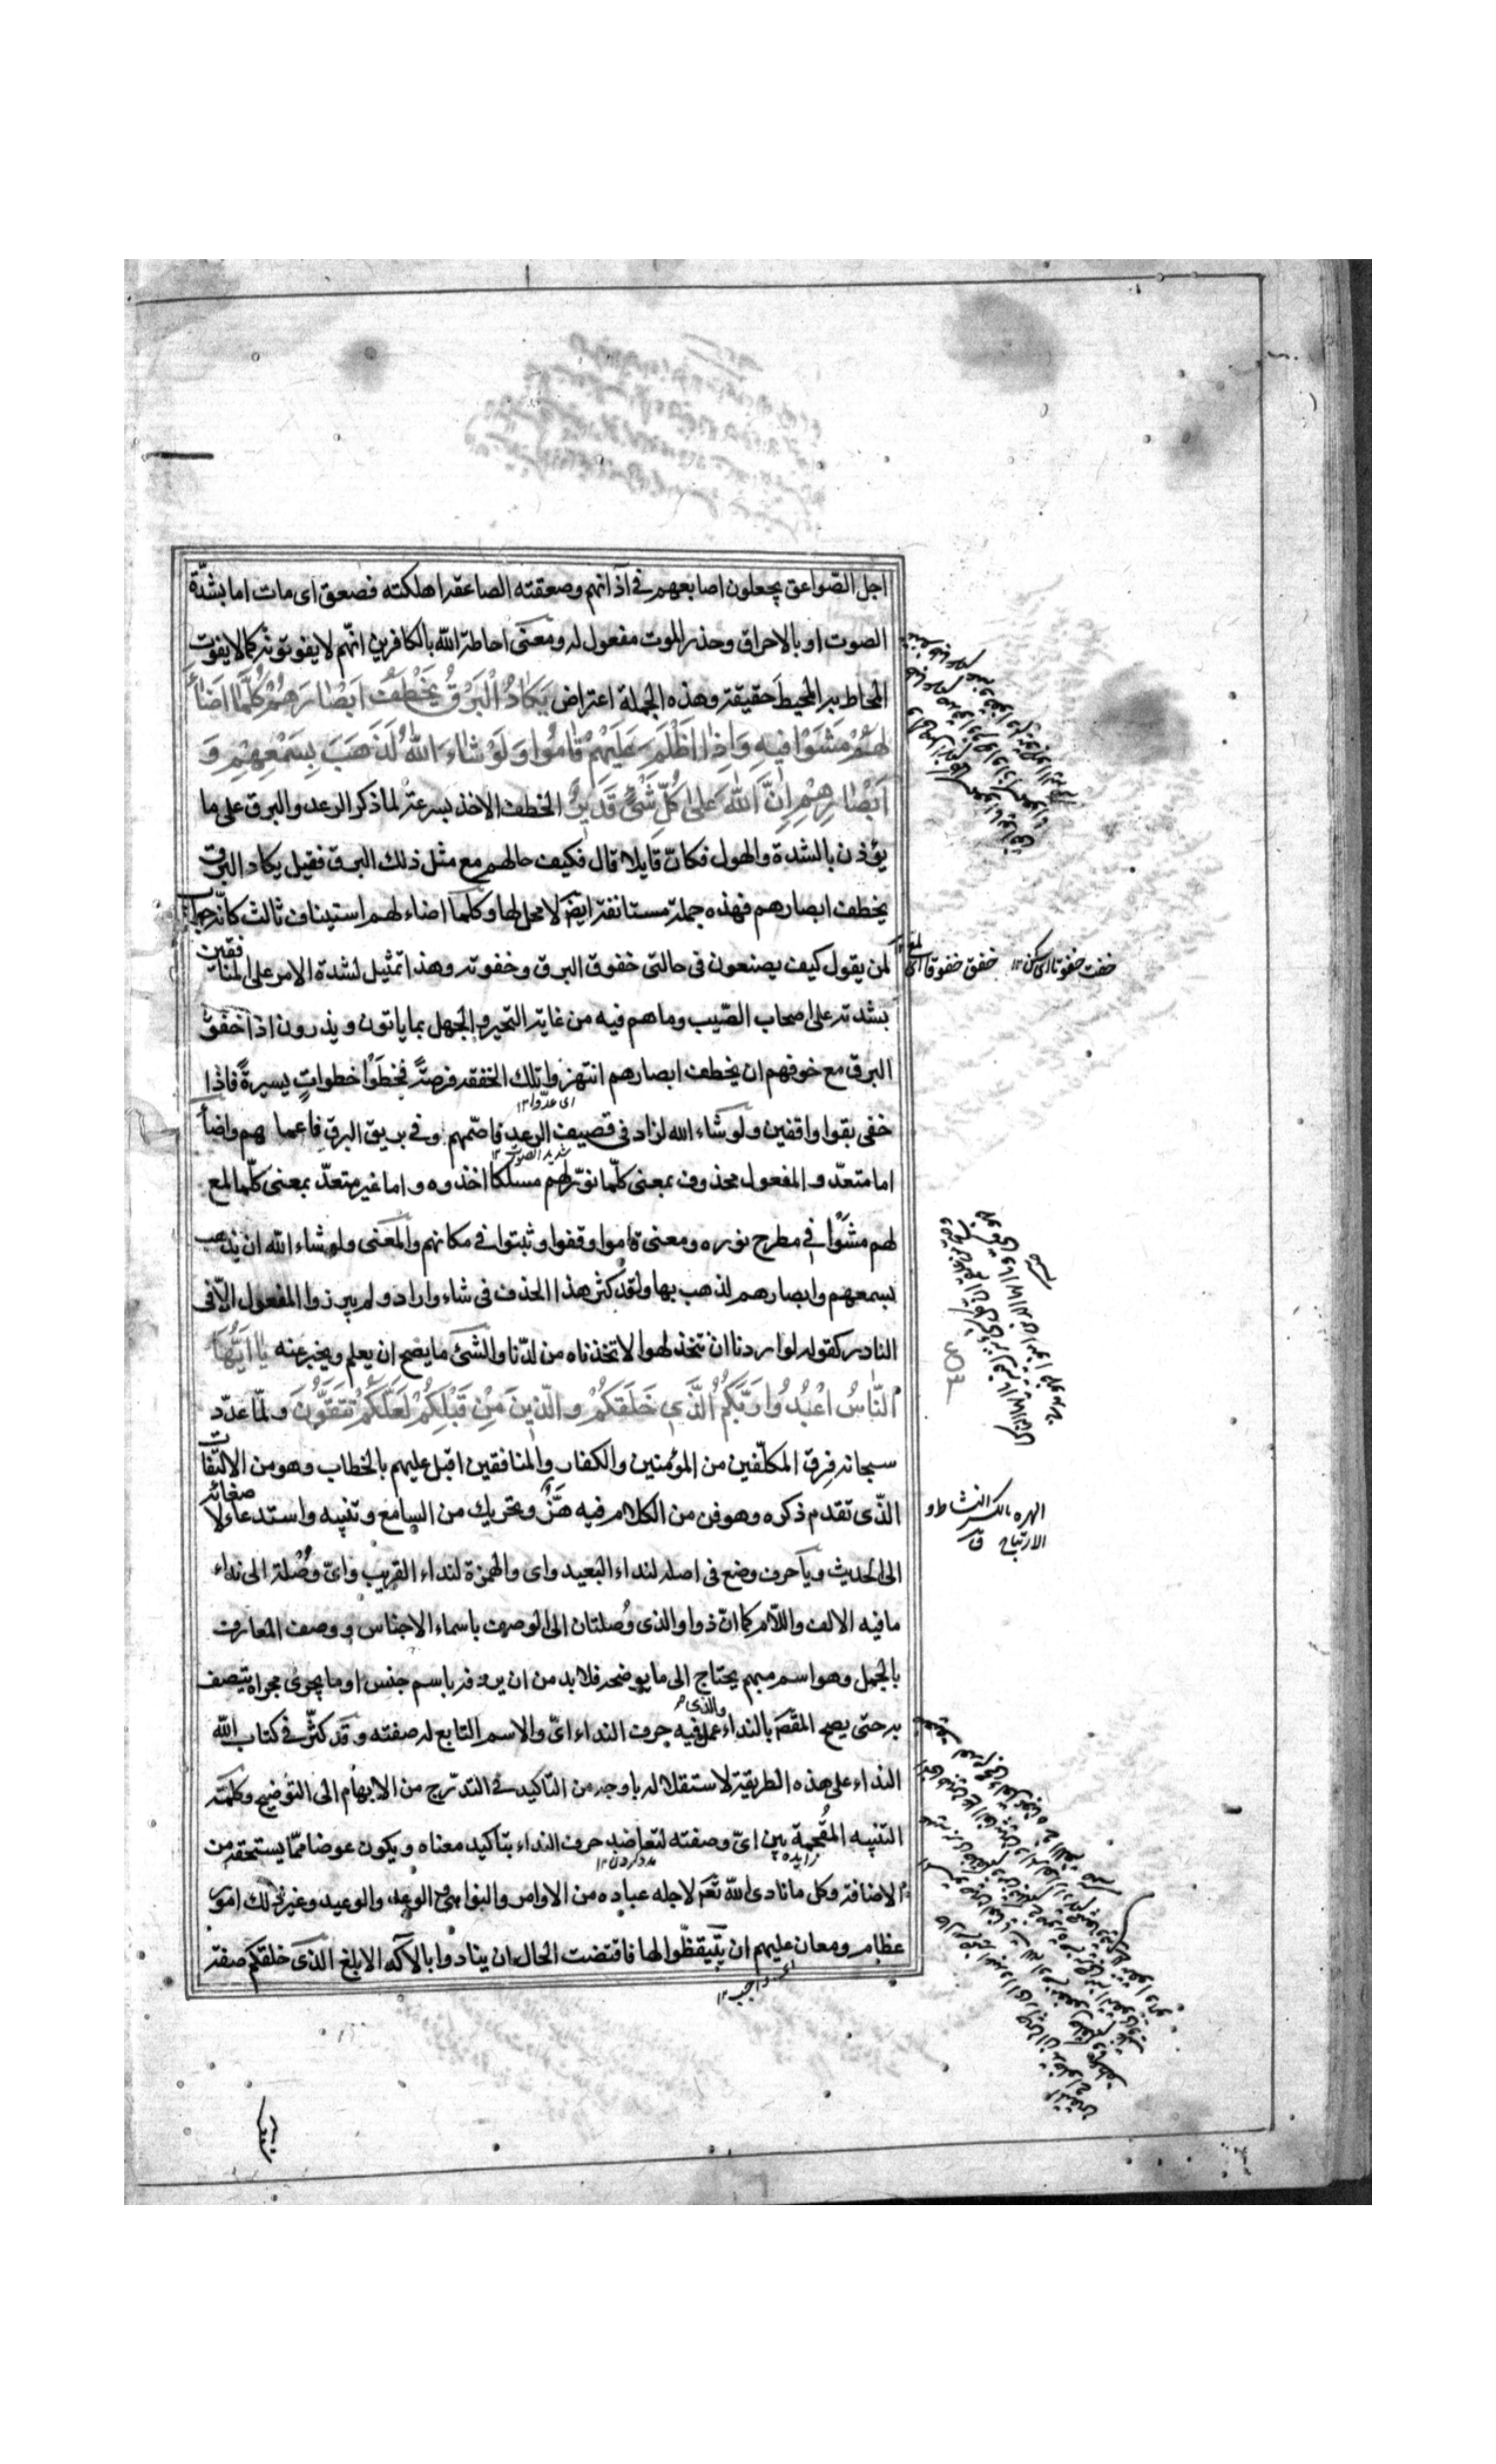 اجل الصّواعق يجعلون اصابعهم فى آذانهم وصعقته الصاعقة اهلكته فصعق اى مات اما بشدّة
الصوت او بالاحراق وحذر الموت مفعول له ومعنى احاطة الله بالكافرين انّهم لا يفوتونه كما لا يفوت
المحاط به المحيط حقيقة وهذه الجملة اعتراض يَكادُ الْبَرْقُ يَخْطَفُ اَبْصارَهُمْ كُلَّما اَضاءَ
لَهُمْ مَشَوْا فيهِ وَاِذا اَظْلَمَ عَلَيْهِمْ قامُوا وَلَوْ شاءَ اللهُ لَذَهَبَ بِسَمْعِهِمْ وَ
اَبْصارِهِمْ اِنَّ اللهَ عَلى كُلِّ شَىْءٍ قَديرٌ الخطف الاخذ بسرعة لما ذكر الرعد والبرق على ما
يؤذن بالشدة والهول فكانّ قايلا قال فكيف حالهم مع مثل ذلك البرق فقيل يكاد البرق
يخطف ابصارهم فهذه جملة مستانفة ايضا لا محل لها وكلما اضاء لهم استيناف ثالث كانّه جواب
لمن يقول كيف يصنعون فى حالتى خفوق البرق وخفوته وهذا تمثيل لشدة الامر على المنافقين
بشدته على اصحاب الصّيب وما هم فيه من غاية التحير والجهل بما ياتون ويذرون اذا خفق
البرق مع خوفهم ان يخطف ابصارهم انتهزوا تلك الخفقة فرصةً فخطَوْا خطواتٍ يسيرةً فاذا
اى عدّوا ١٢
خفى بقوا واقفين ولو شاء الله لزاد فى قصيف الرعد فاصّمهم وفى بريق البرق فاعماهم واضاء
شديد الصوت ١٢
اما متعدّ والمفعول محذوف بمعنى كلّما نوّر لهم مسلكا اخذوه واما غير متعدّ بمعنى كلّما لمع
لهم مشَوْا فى مطرح نوره ومعنى قاموا وقفوا وثبتوا فى مكانهم والمعنى ولو شاء الله ان يذهب
بسمعهم وابصارهم لذهب بها ولقد كثر هذا الحذف فى شاء واراد ولم يبرزوا المفعول الّا فى
النادر كقوله لو اردنا ان نتخذ لهوا لاتخذناه من لدنّا والشئ ما يصح ان يعلم ويخبر عنه يا اَيُّهَا
النّاسُ اعْبُدُوا رَبَّكُمُ الَّذى خَلَقَكُمْ وَالَّذينَ مِنْ قَبْلِكُمْ لَعَلَّكُمْ تَتَّقُونَ ولمّا عدّد
سبحانه فرق المكلّفين من المؤمنين والكفار والمنافقين اقبل عليهم بالخطاب وهو من الالتفات
الّذى تقدم ذكره وهو فن من الكلام فيه هَزٌّ وتحريك من السامع وتنبيه واستدعاء لاصغائه
الى الحديث ويا حرف وضع فى اصله لنداء البعيد واى والهمزة لنداء القريب واىّ وُصْلة الى نداء
ما فيه الالف واللّام كما انّ ذوا والذى وُصلتان الى الوصف باسماء الاجناس ووصف المعارف
بالجمل وهو اسم مبهم يحتاج الى ما يوضحه فلا بد من ان يردفه باسم جنس او ما يجرى مجراه يتصف
به حتى يصح المقصد بالنداء والذى عمل فيه حرف النداء اىّ والاسم التابع له صفته وقد كثّر فى كتاب الله
النداء على هذه الطريقة لاستقلاله باوجه من التاكيد فى التدرّج من الابهام الى التوضيح وكلمة
التنبيه المُقحمة بين اىّ وصفته لتعاضد حرف النداء بتاكيد معناه ويكون عوضا ممّا يستحقه من
زايده
مدد كردن ١٢
الاضافة وكل ما نادى الله تعم لاجله عباده من الاوامر والنواهى والوعد والوعيد وغير ذلك امور
عظام ومعان عليهم ان يتيقظّوا لها فاقتضت الحال ان ينادوا بالآكد الابلغ الذى خلقكم صفة
خفق خفوقا اى لمع
خفت خفوتا اى سكن ١٢
الهزه بالكسر النشاط و
الارتياح ق